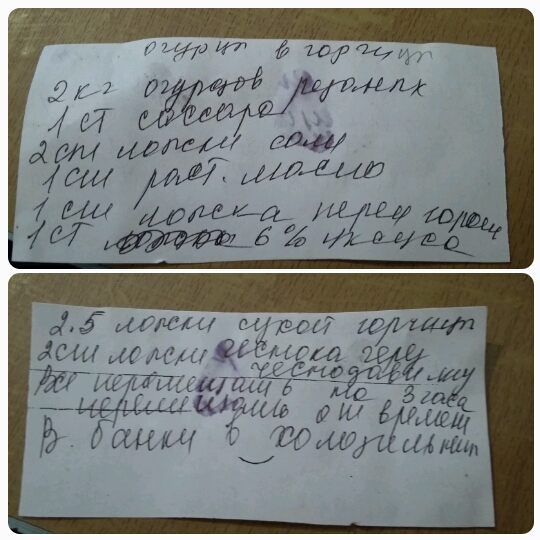 огурцы в горчице
2 кг огурцов резаных
1 ст сахара
2 ст ложки соли
1 ст раст. масло
1 ст ложка перец горош
1 ст 6% уксуса
2.5 ложки сухой горчицы
2 ст ложки чеснока через
чеснодавилку
Все перемешать на 3 часа
перемешиать от времен
В банки в холодильник